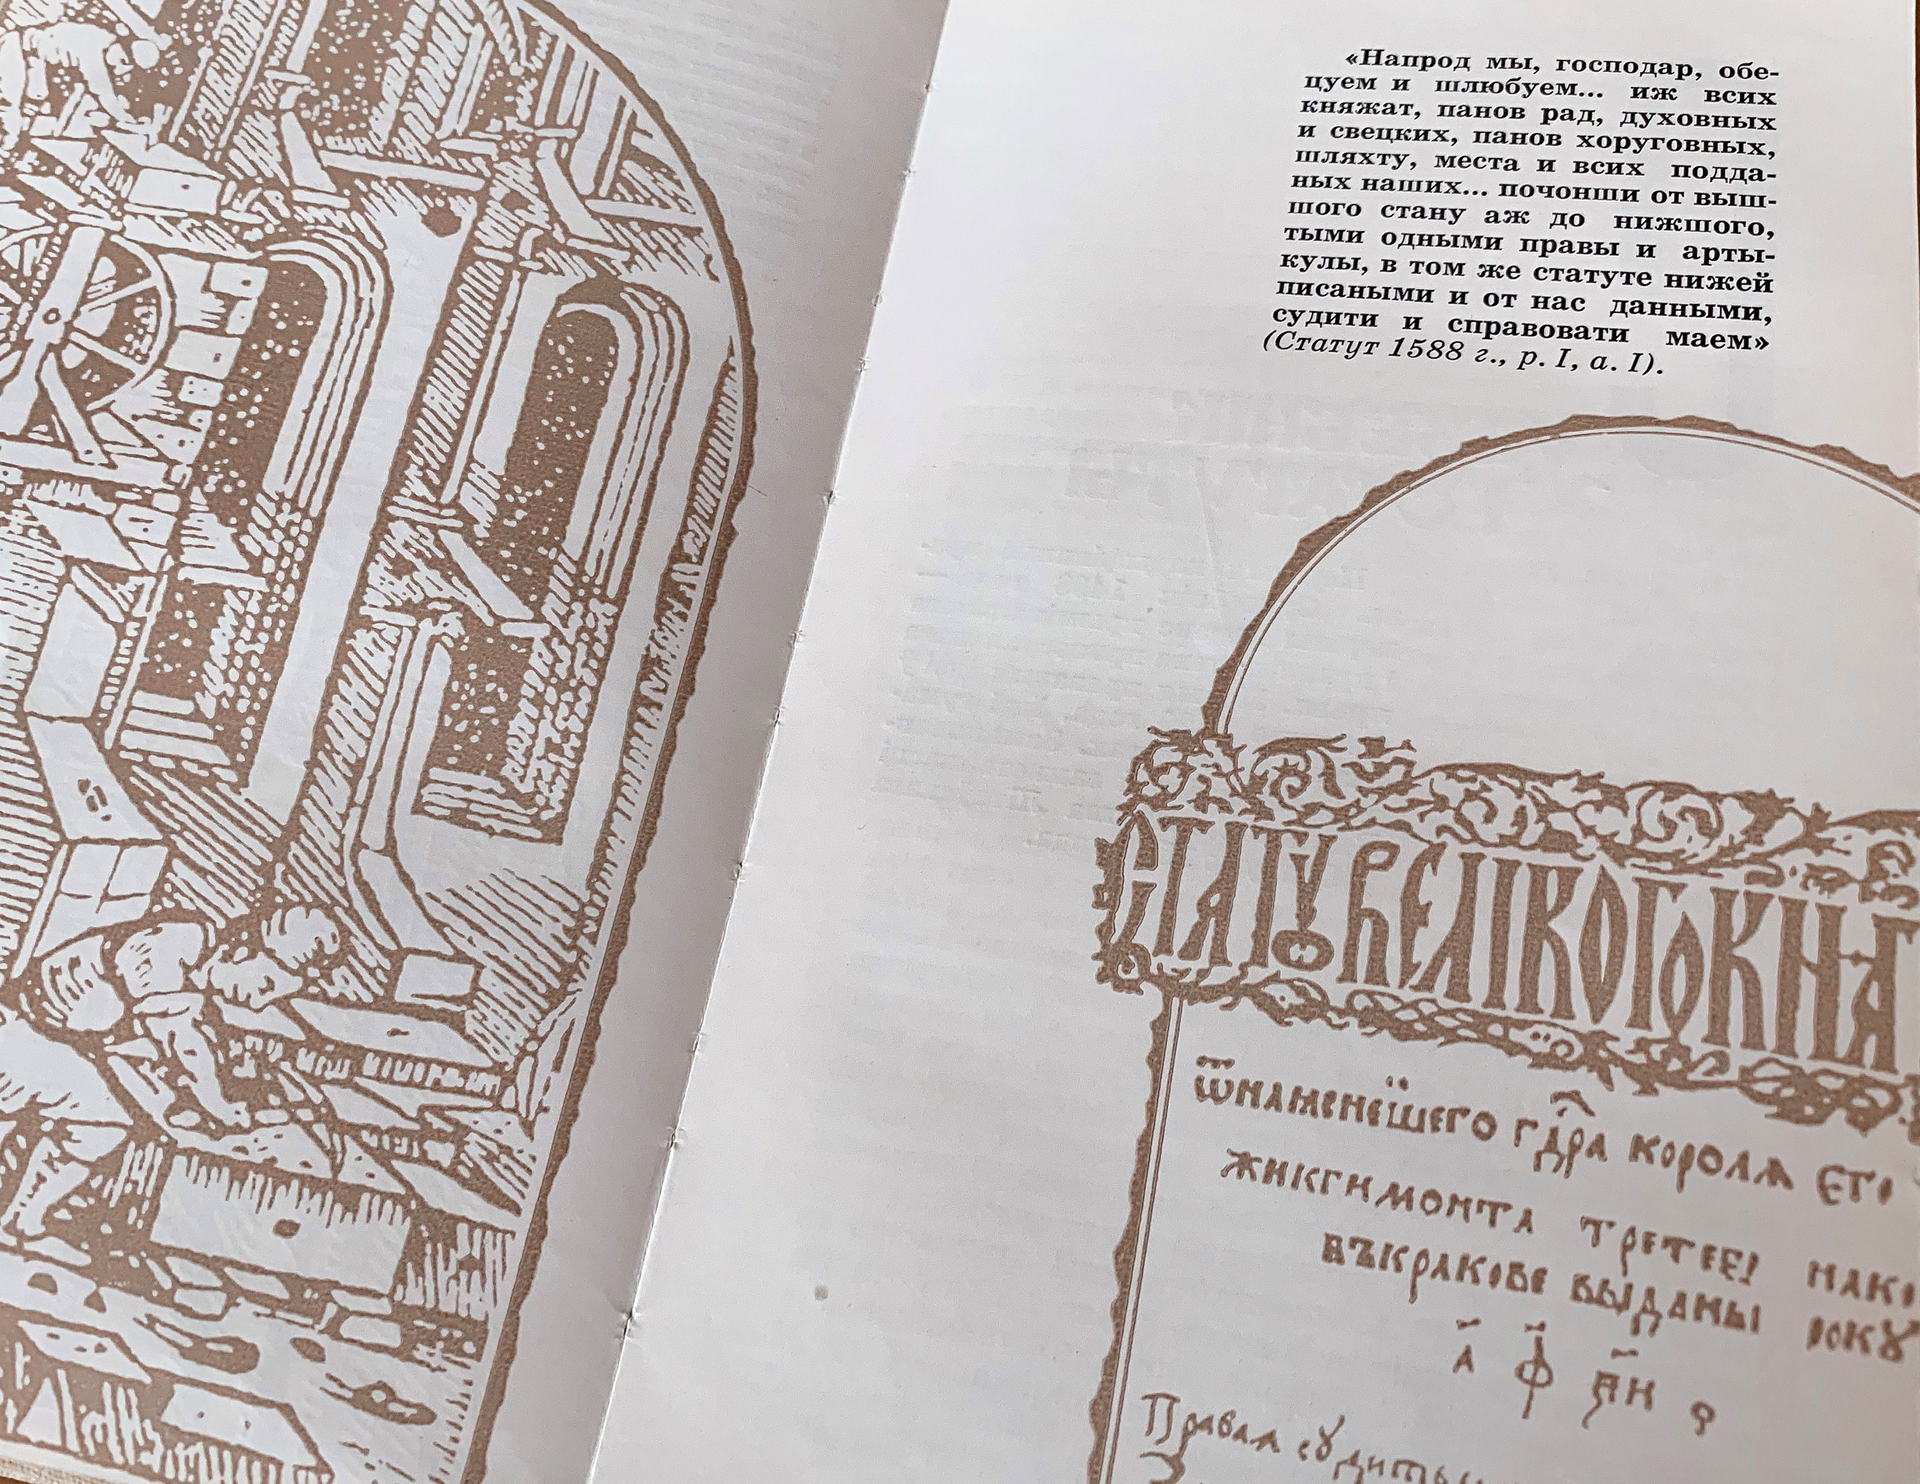 «Напрод мы, господар, обе-
цуем и шлюбуем... иж всих
княжат, панов рад, духовных
и свецких, панов хоруговных,
шляхту, места и всих подда-
ных наших... почонши от выш-
шого стану аж до нижшого,
тыми одными правы и арты-
кулы, в том же статуте нижей
писаными и от нас данными,
судити и справовати маем»
(Статут 1588 г., р. I, а. I).
СТАТУ ВЕЛІКОГО КНА
ѿнаꙗснешего гдра королѧ его
жикгимонта третее нако
въкракове выданы року
а ф пи
Правая